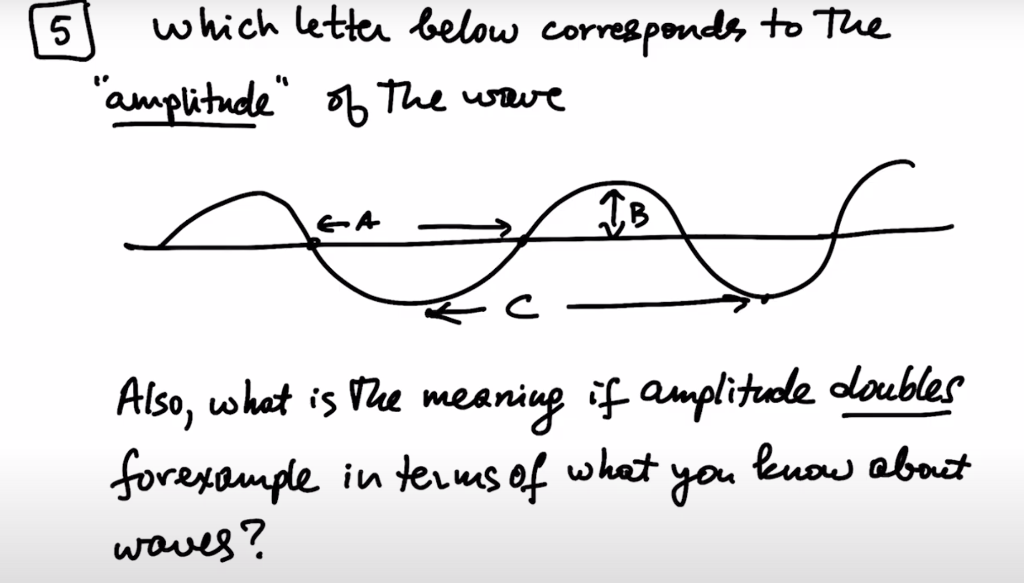 5 which letter below corresponds to the
"amplitude" of the wave
A
B
C
Also, what is the meaning if amplitude doubles
for example in terms of what you know about
waves?